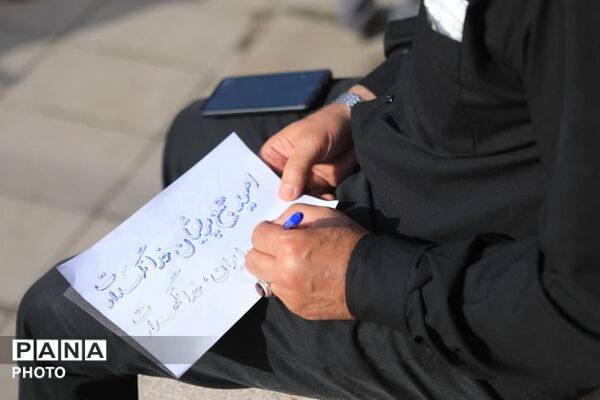 امید جمع پریشان، خدا نگهدارت
ایران، خدا نگهدارت
PANA
PHOTO